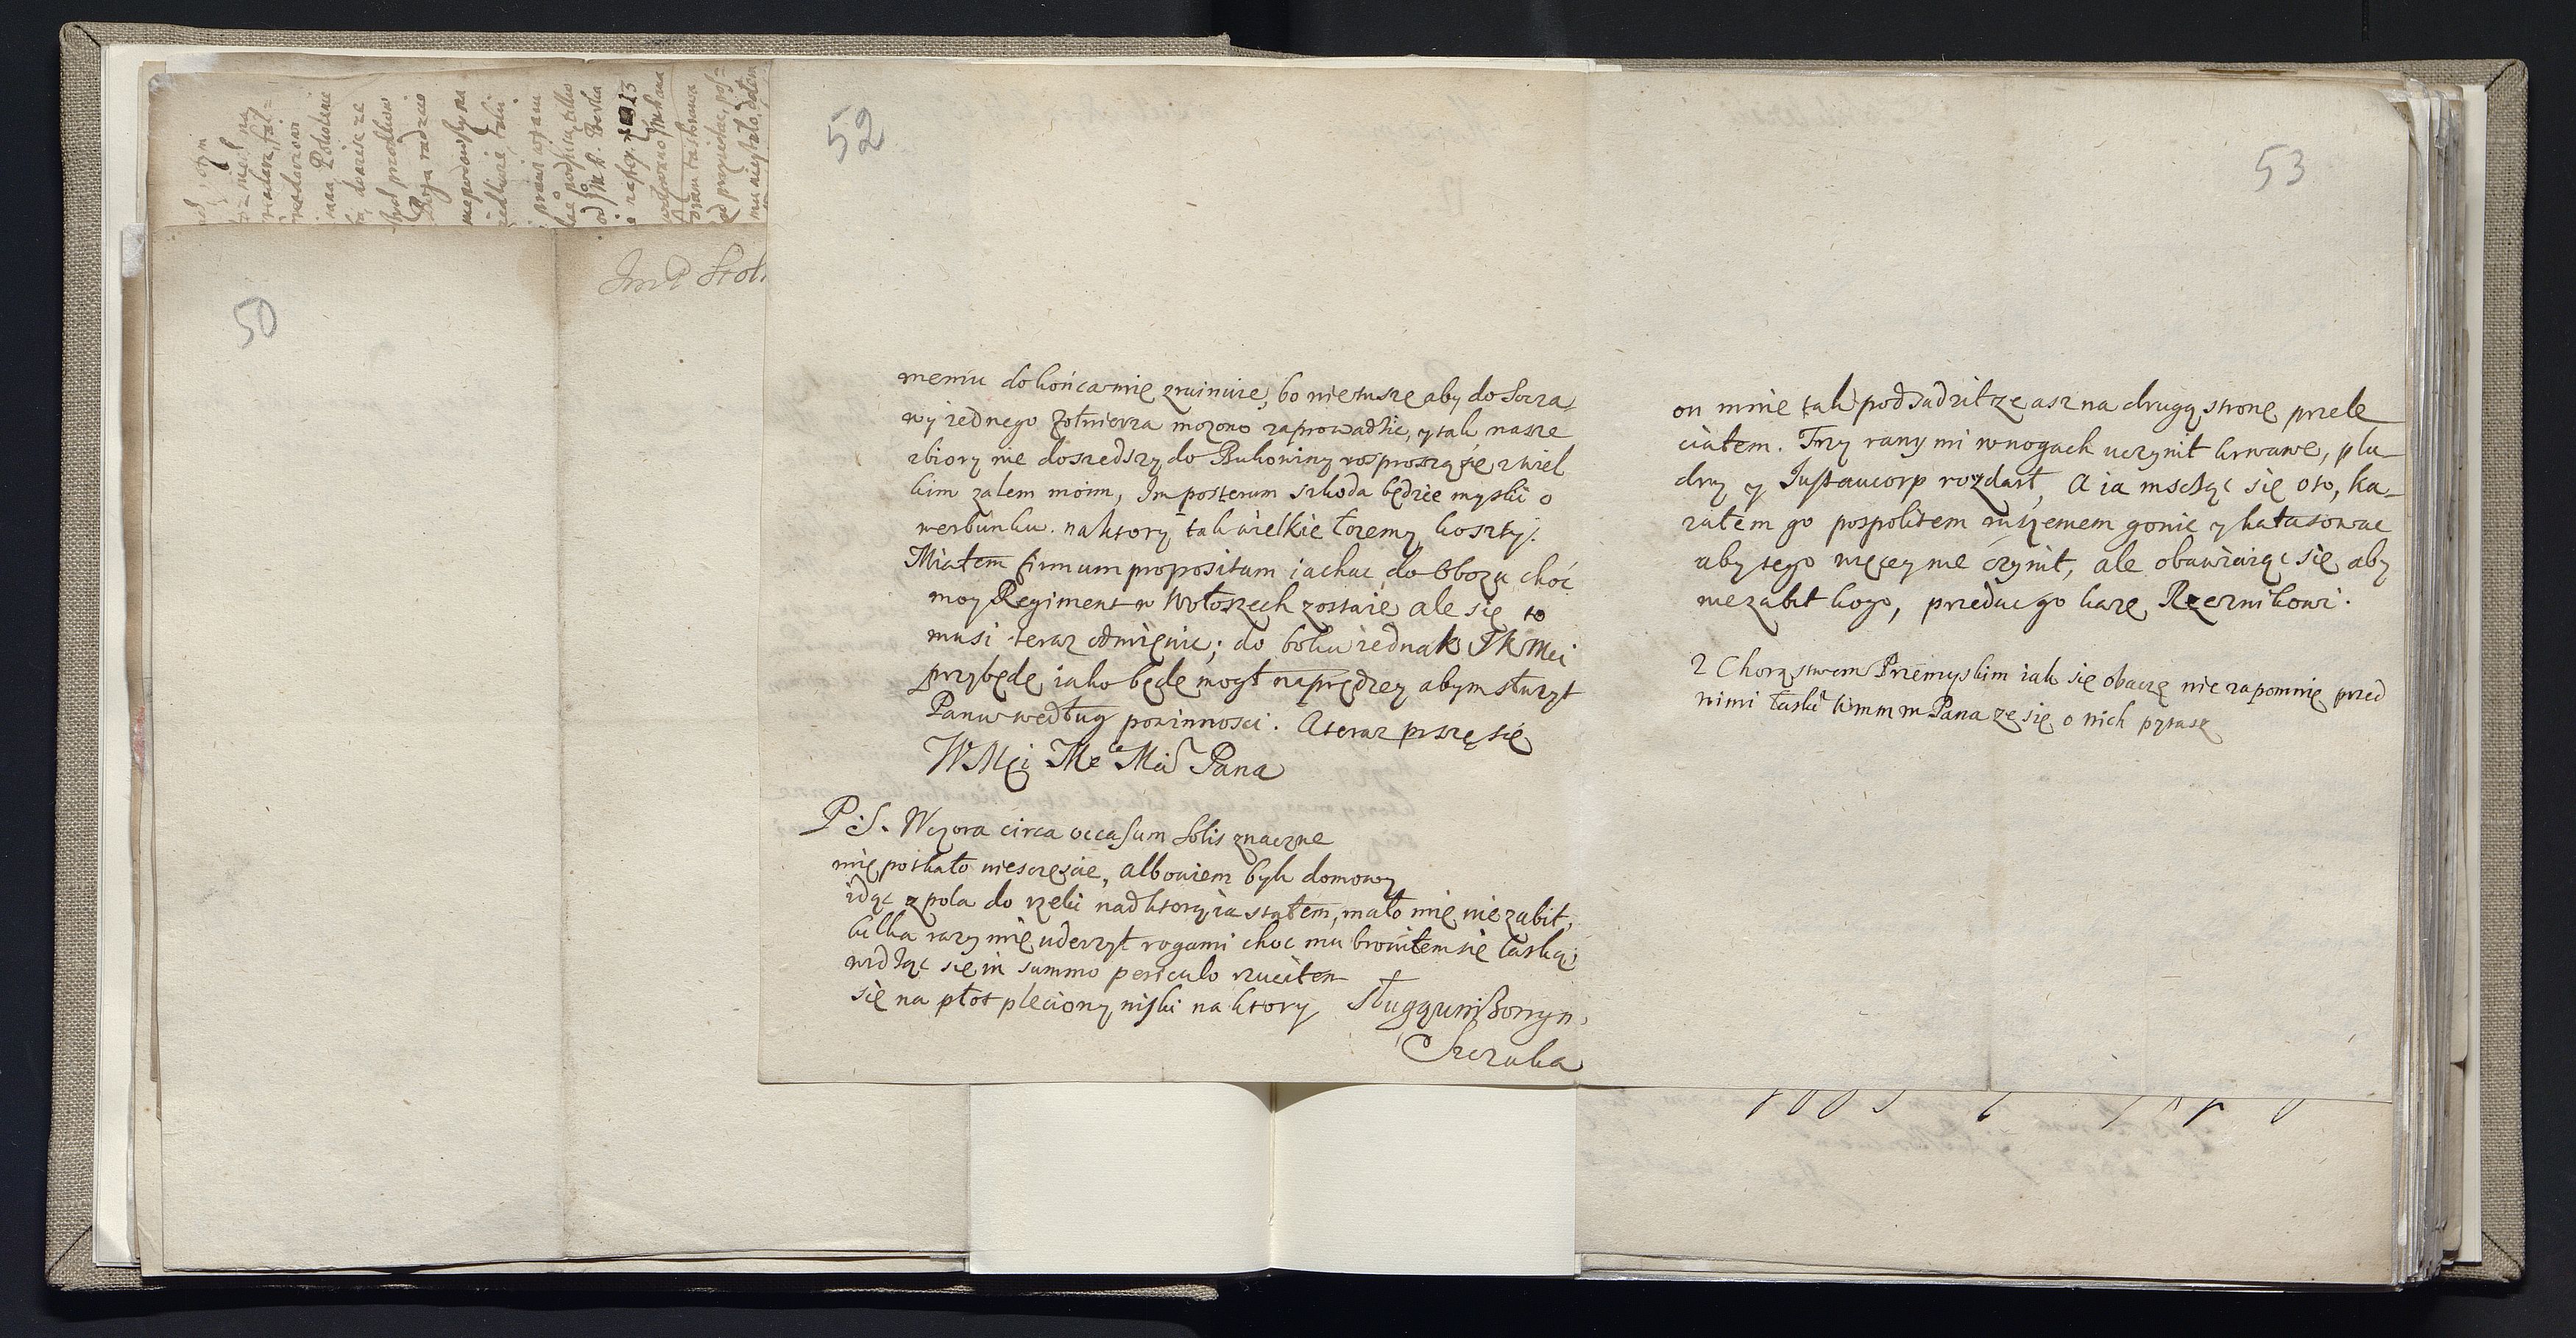 50
Jmć P Stol
52
meniu do końca mię zruinuie, bo nie tuszę aby do Socza-
wy iednego żołnierza mozono zaprowadzic, y tak nasze
zbiory nie doszedszy do Bukowiny rosproszą się z wiel
kim zalem moim, Im posterum szkoda będzie myslic o
werbunku. na ktory tak wielkie łozemy koszty.
Miałem firmum propositum iachac do Obozu choć
moy Regiment w Wołoszech zostaie ale się to
musi teraz odmięnic; do boku iednak JKMci
przybędę iako będę mogł naprędzey abym słuzył
Panu według powinnosci. A teraz piszę się
WMći Me Mći Pana
P.S. Wczora circa occasum solis znaczne
mię potkało niesczęscie, albowiem byk domowy
idąc z pola do rzeki nad ktorą ia stałem, mało mię nie zabił,
kilka razy mię uderzył rogami choc mu broniłem się laską;
widząc się in summo periculo rzuciłem
się na płot pleciony niski na ktory
Sługą uniżonym
Szczuka
53
on mnie tak podsadził ze asz na drugą stronę przele
ciałem. Trzy rany mi w nogach uczynił krwawe, plu-
dry y Justaucorp rozdarł, A ia mscząc się o to, ka-
załem go pospolitem ruszeniem gonic y hałasowac
aby tego więcey nie czynił, ale obawiaiąc się aby
nie zabił kogo, przedac go karzę Rzeznikowi.
Z Chorąstwem Przemyskim iak się obaczę nie zapomnię przed
nimi łaski Wmm m Pana ze się o nich pytasz